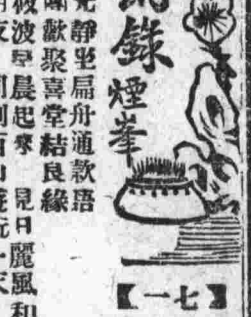 錄
煙峯
【一七】
靜坐扁舟通款語
歡聚喜堂結良緣
波早晨起來 見日麗風和